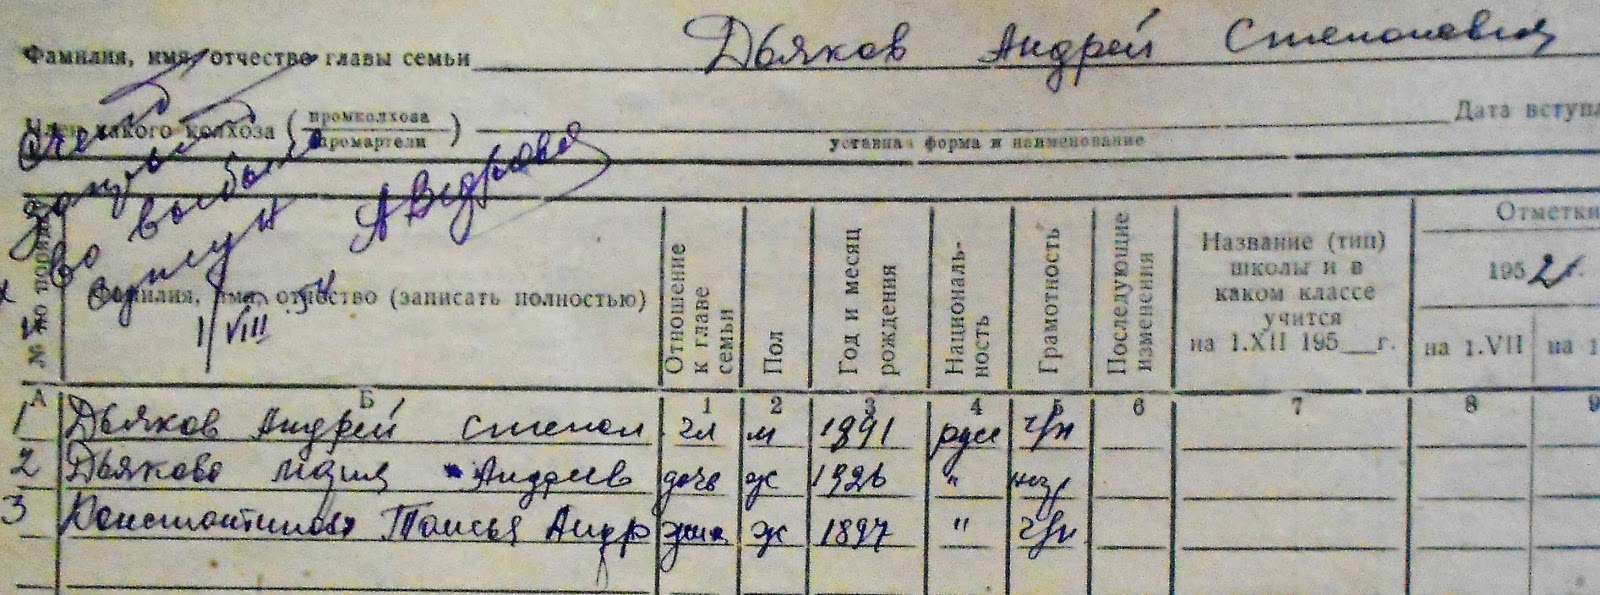 Фамилия, имя, отчество главы семьи Дьяков Андрей Степанович
Член какого колхоза (промколхоза промартели) Дата вступл
уставная форма и наименование
выбыл
I/VIII
№№ по порядку
Фамилия, имя, отчество (записать полностью)
Отношение к главе семьи
Пол
Год и месяц рождения
Националь-ность
Грамотность
Последующие изменения
Название (тип) школы и в каком классе учится на 1.XII 195 г.
Отметки
195 г.
на 1.VII
на 1
А Б 1 2 3 4 5 6 7 8 9
1 Дьяков Андрей Степан гл м 1891 русс
2 Дьякова Андреев дочь ж 1926 "
3 Константинова Таисья Андр ж 1897 "